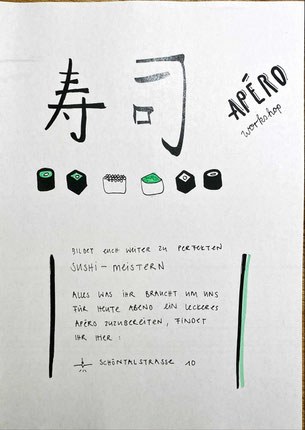 寿司
APÉRO
workshop
BILDET EUCH WEITER ZU PERFEKTEN
SUSHI - MEISTERN
ALLES WAS IHR BRAUCHT UM UNS
FÜR HEUTE ABEND EIN LECKERES
APÉRO ZUZUBEREITEN, FINDET
IHR HIER:
SCHÖNTALSTRASSE 10